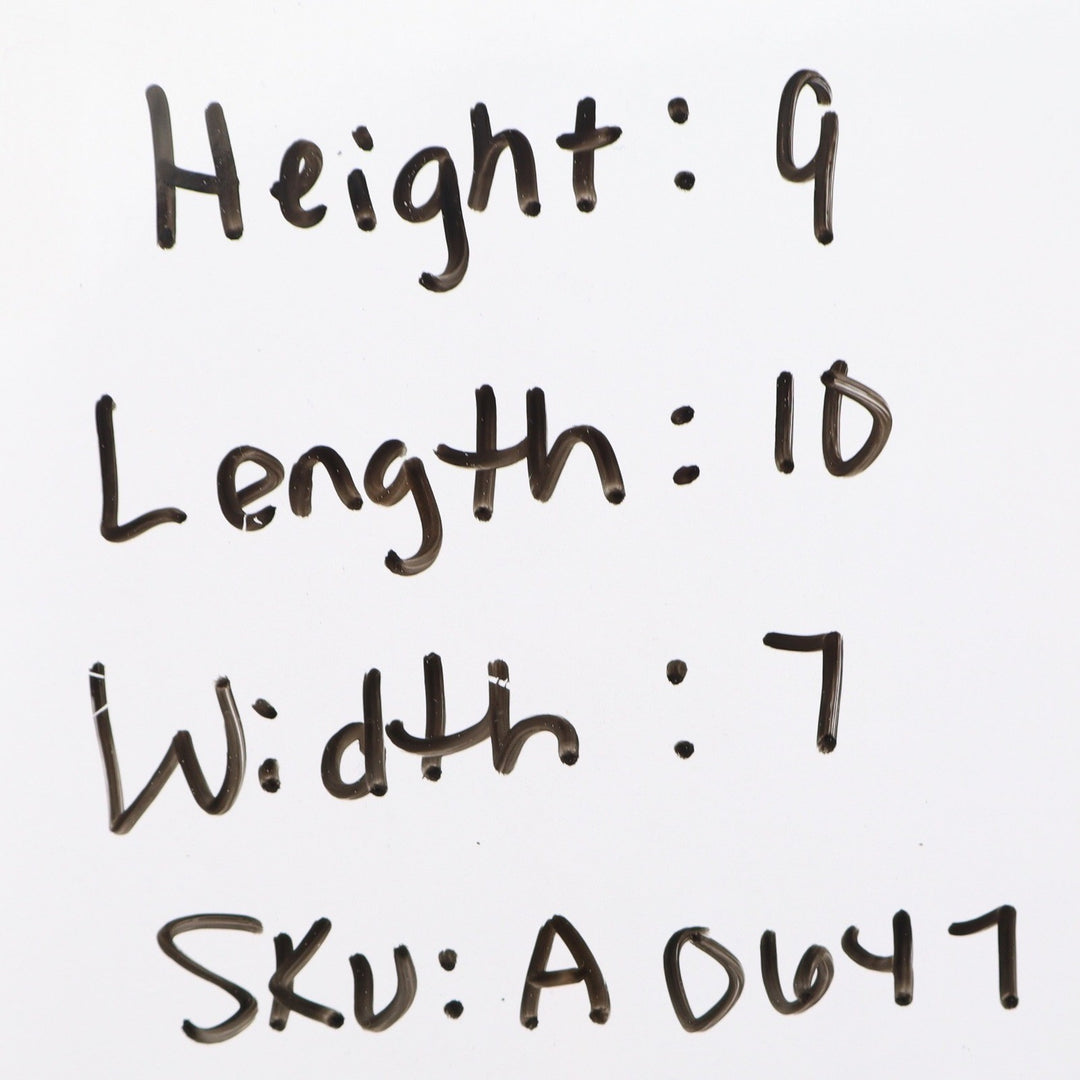 Height: 9
Length: 10
Width: 7
SKU: A0647